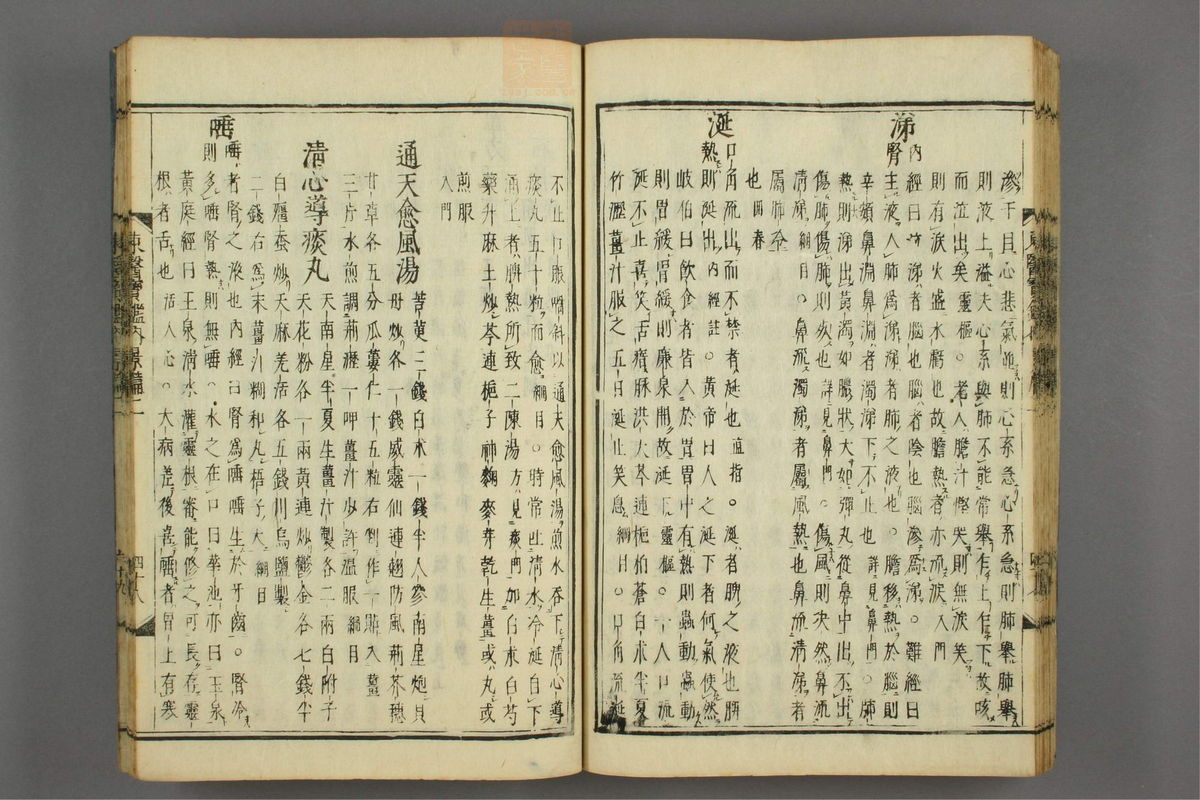 滲于目心悲氣並則心系急心系急則肺擧肺擧
則液上溢夫心系與肺不能常擧乍上乍下故咳
而泣出矣靈樞○老人膽汁慳哭則無淚笑
則有淚火盛水虧也故膽熱者亦流淚入門
涕
內經曰腦滲爲涕○難經曰
腎主液入肺爲涕涕者肺之液也○膽移熱於腦則
辛頞鼻淵鼻淵者濁涕下不止也詳見鼻門○肺
熱則涕出黃濁如膿狀大如彈丸從鼻中出不出
傷肺傷肺則死也詳見鼻門○傷風則決然鼻流
淸涕綱目○鼻流濁涕者屬風熱也鼻流淸涕者
屬肺冷
也回春
涎
口角流出而不禁者涎也直指○涎者脾之液也脾
熱則涎出內經註○黃帝曰人之涎下者何氣使然
岐伯曰飮食者皆入於胃胃中有熱則蟲動蟲動
則胃緩胃緩則廉泉開故涎下靈樞○一人口流
涎不止喜笑舌瘖脉洪大芩連梔柏蒼白朮半夏
竹瀝薑汁服之五日涎止笑息綱目○口角流涎
不止口眼喎斜以通天愈風湯煎水呑下淸心導
痰丸五十粒而愈綱目○時常吐淸水冷涎自下
涌上者脾熱所致二陳湯方見痰門加白朮白芍
藥升麻土炒芩連梔子神麴麥芽乾生薑或丸或
煎服
入門
通天愈風湯
苦莄二錢白朮一錢半人參南星炮貝
母炒各一錢威靈仙連翹防風荊芥穗
甘草各五分瓜蔞仁十五粒右剉作一貼入薑
三片水煎調荊瀝一呷薑汁少許溫服綱目
淸心導痰丸
天南星半夏生薑汁製各二兩白附子
天花粉各一兩黃連炒鬱金各七錢半
白殭蚕炒天麻羌活各五錢川烏鹽製
二錢右爲末薑汁糊和丸梧子大綱目
唾
唾者腎之液也內經曰腎爲唾唾生於牙齒○腎冷
則多唾腎熱則無唾○水之在口曰華池亦曰玉泉
黃庭經曰玉泉淸水灌靈根審能修之可長存靈
根者舌也活人心○大病差後喜唾者胃上有寒
東醫寶鑑內景篇二
四十八